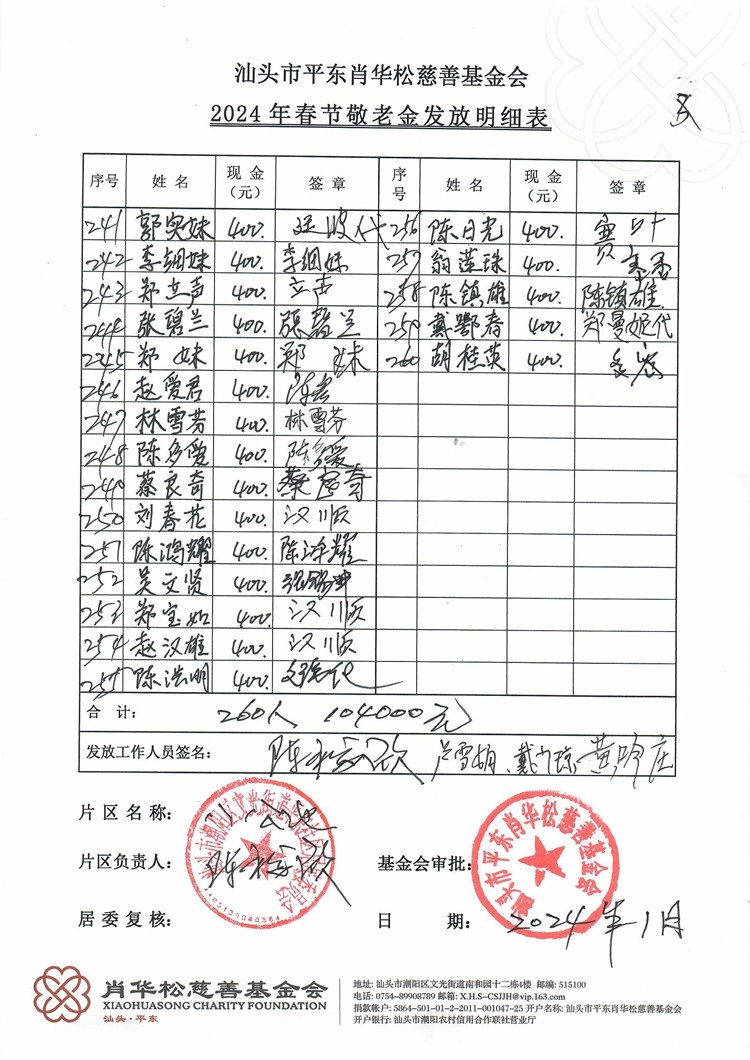 汕头市平东肖华松慈善基金会
2024年春节敬老金发放明细表
序号 姓名 现金(元) 签章 序号 姓名 现金(元) 签章
241 郭实妹 400. 代 256 陈日光 400.
242 李细妹 400. 李细妹 257 翁莲珠 400.
243 郑立声 400. 立声 258 陈镇雄 400. 陈镇雄
244 张碧兰 400. 张碧兰 259 戴鄂春 400. 郑曼姬代
245 郑妹 400. 郑妹 260 胡桂英 400.
246 赵爱君 400.
247 林雪芬 400. 林雪芬
248 陈多爱 400. 陈多爱
249 蔡良奇 400. 蔡良奇
250 刘春花 400. 汉顺
251 陈鸿耀 400. 陈泽耀
252 吴文贤 400.
253 郑宝如 400. 汉顺
254 赵汉雄 400. 汉顺
255 陈浩明 400.
合计: 260人 104000元
发放工作人员签名: 黄吟庄
片区名称:
片区负责人:
基金会审批:
汕头市平东肖华松慈善基金会
居委复核:
日期: 2024年1月
肖华松慈善基金会
XIAOHUASONG CHARITY FOUNDATION
汕头·平东
地址: 汕头市潮阳区文光街道南和园十二栋4楼 邮编: 515100
电话: 0754-89908789 邮箱: X.H.S-CSJJH@vip.163.com
捐款帐户: 5864-501-01-2-2011-001047-25 开户名称: 汕头市平东肖华松慈善基金会
开户银行: 汕头市潮阳农村信用合作联社营业厅